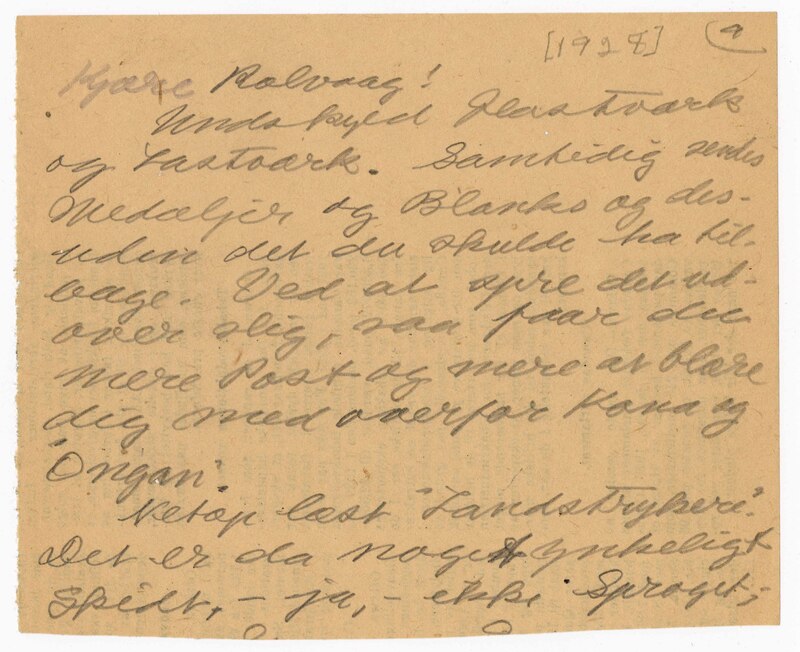 [1928]
Kjære Rolvaag!
Undskyld Hastværk
og Lastværk. Samtidig sendes
Medaljer og Blanks og des-
uden det du skulde ha til-
bage. Ved at spre det ud-
over slig, saa faar du
mere Post og mere at blære
dig med overfor Kona og
"Ongan".
Netop læst "Landstrykere".
Det er da noget ynkeligt
Skidt, - ja, - ikke Sproget;